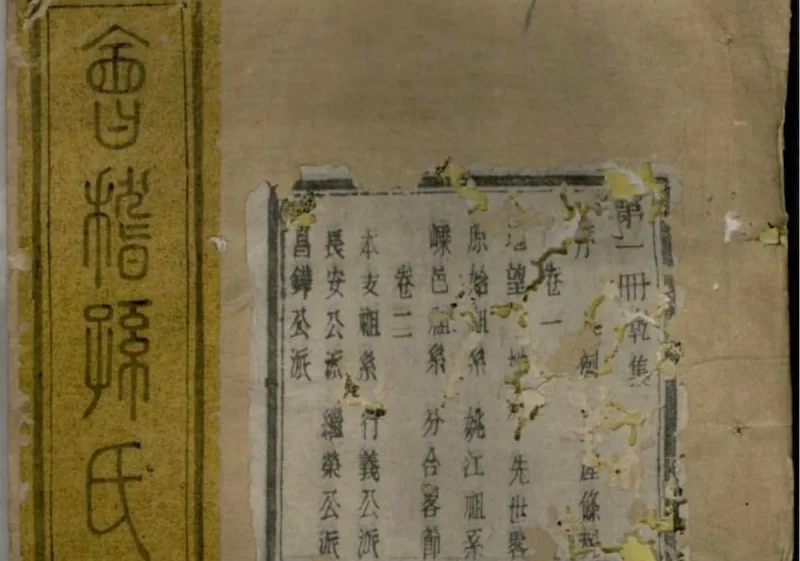 會稽孫氏
第一冊 乾集
序 例 條
卷一
望 地 先世畧
原始祖系 姚江祖系
嵊邑祖系 分合畧節
卷二
本支祖系 行義公派
長安公派 繼榮公派
昌鏵公派